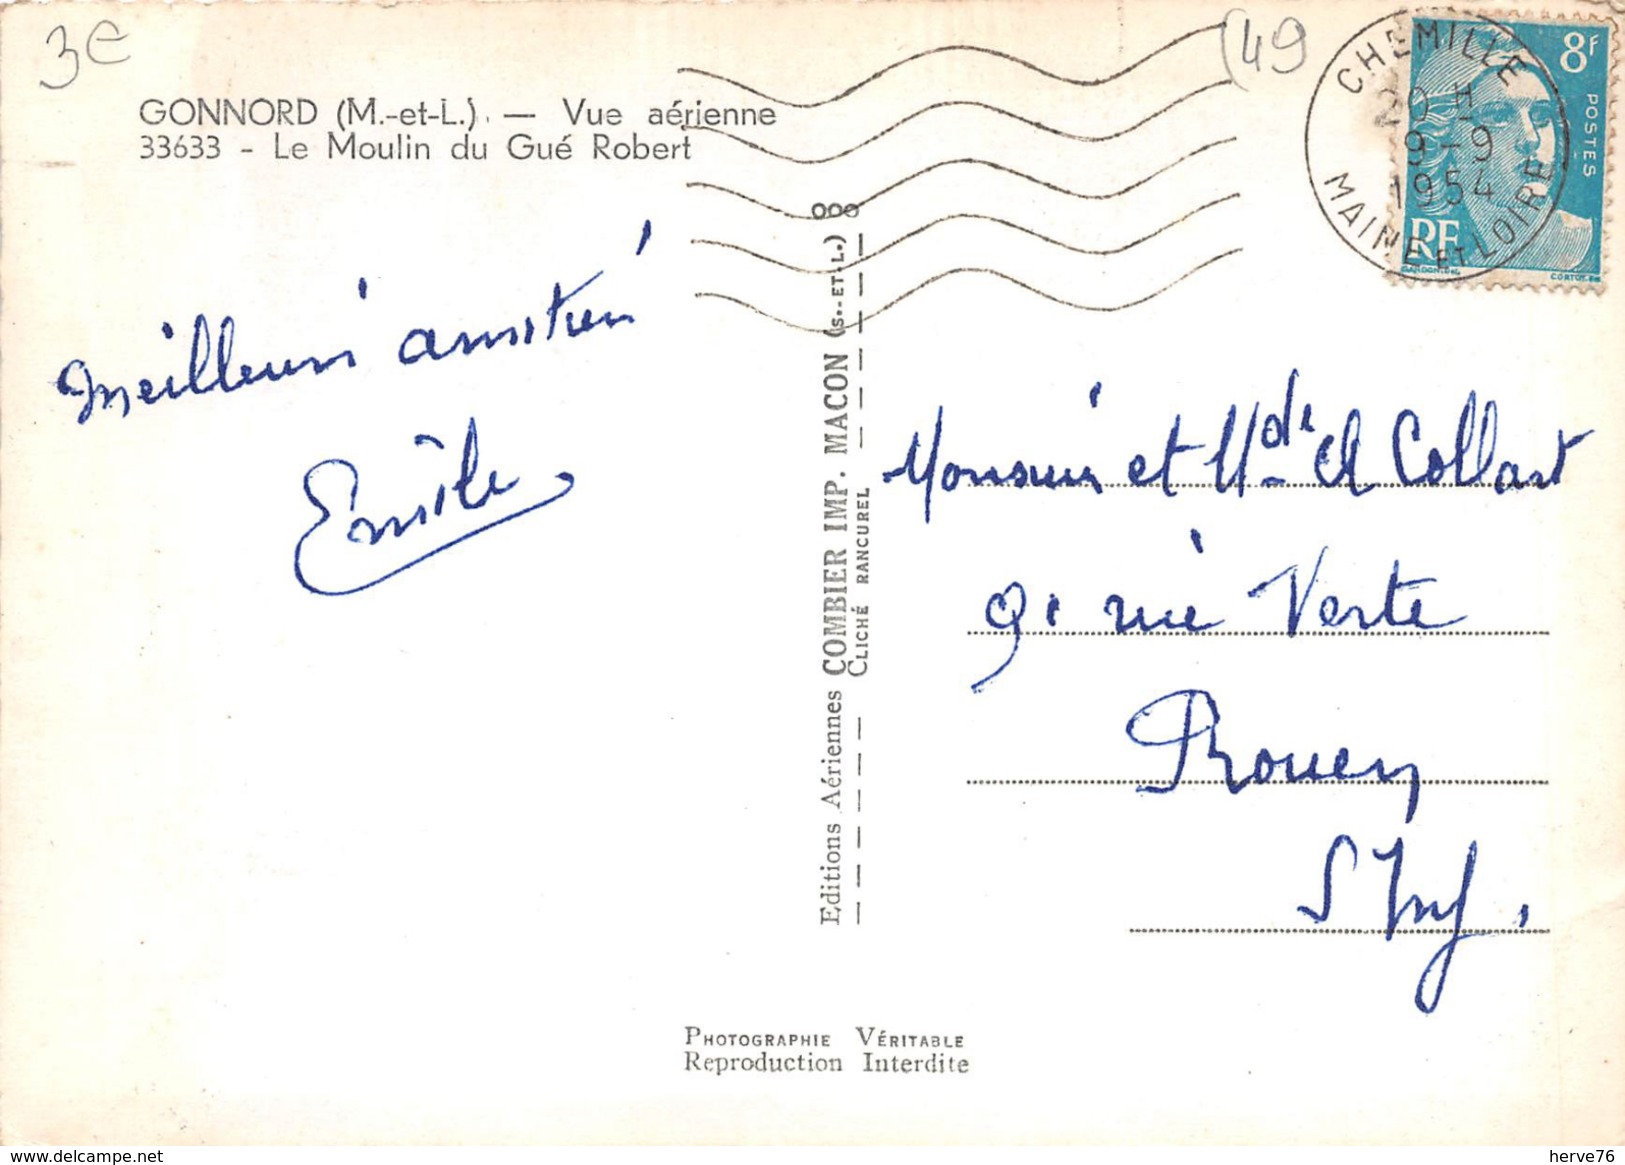 3€
(49
GONNORD (M.-et-L.). — Vue aérienne
33633 - Le Moulin du Gué Robert
CHEMILLE
20 H
9-9
1954
MAINE ET LOIRE
8F
POSTES
RF
GANDON DEL
CORTOT SC
Meilleurs amitiés
Emile
Editions Aériennes COMBIER IMP. MACON (S.-ET-L.)
CLICHÉ RANCUREL
Monsieur et Mde A Collart
91 rue Verte
Rouen
S Inf.
PHOTOGRAPHIE VÉRITABLE
Reproduction Interdite
www.delcampe.net
herve76